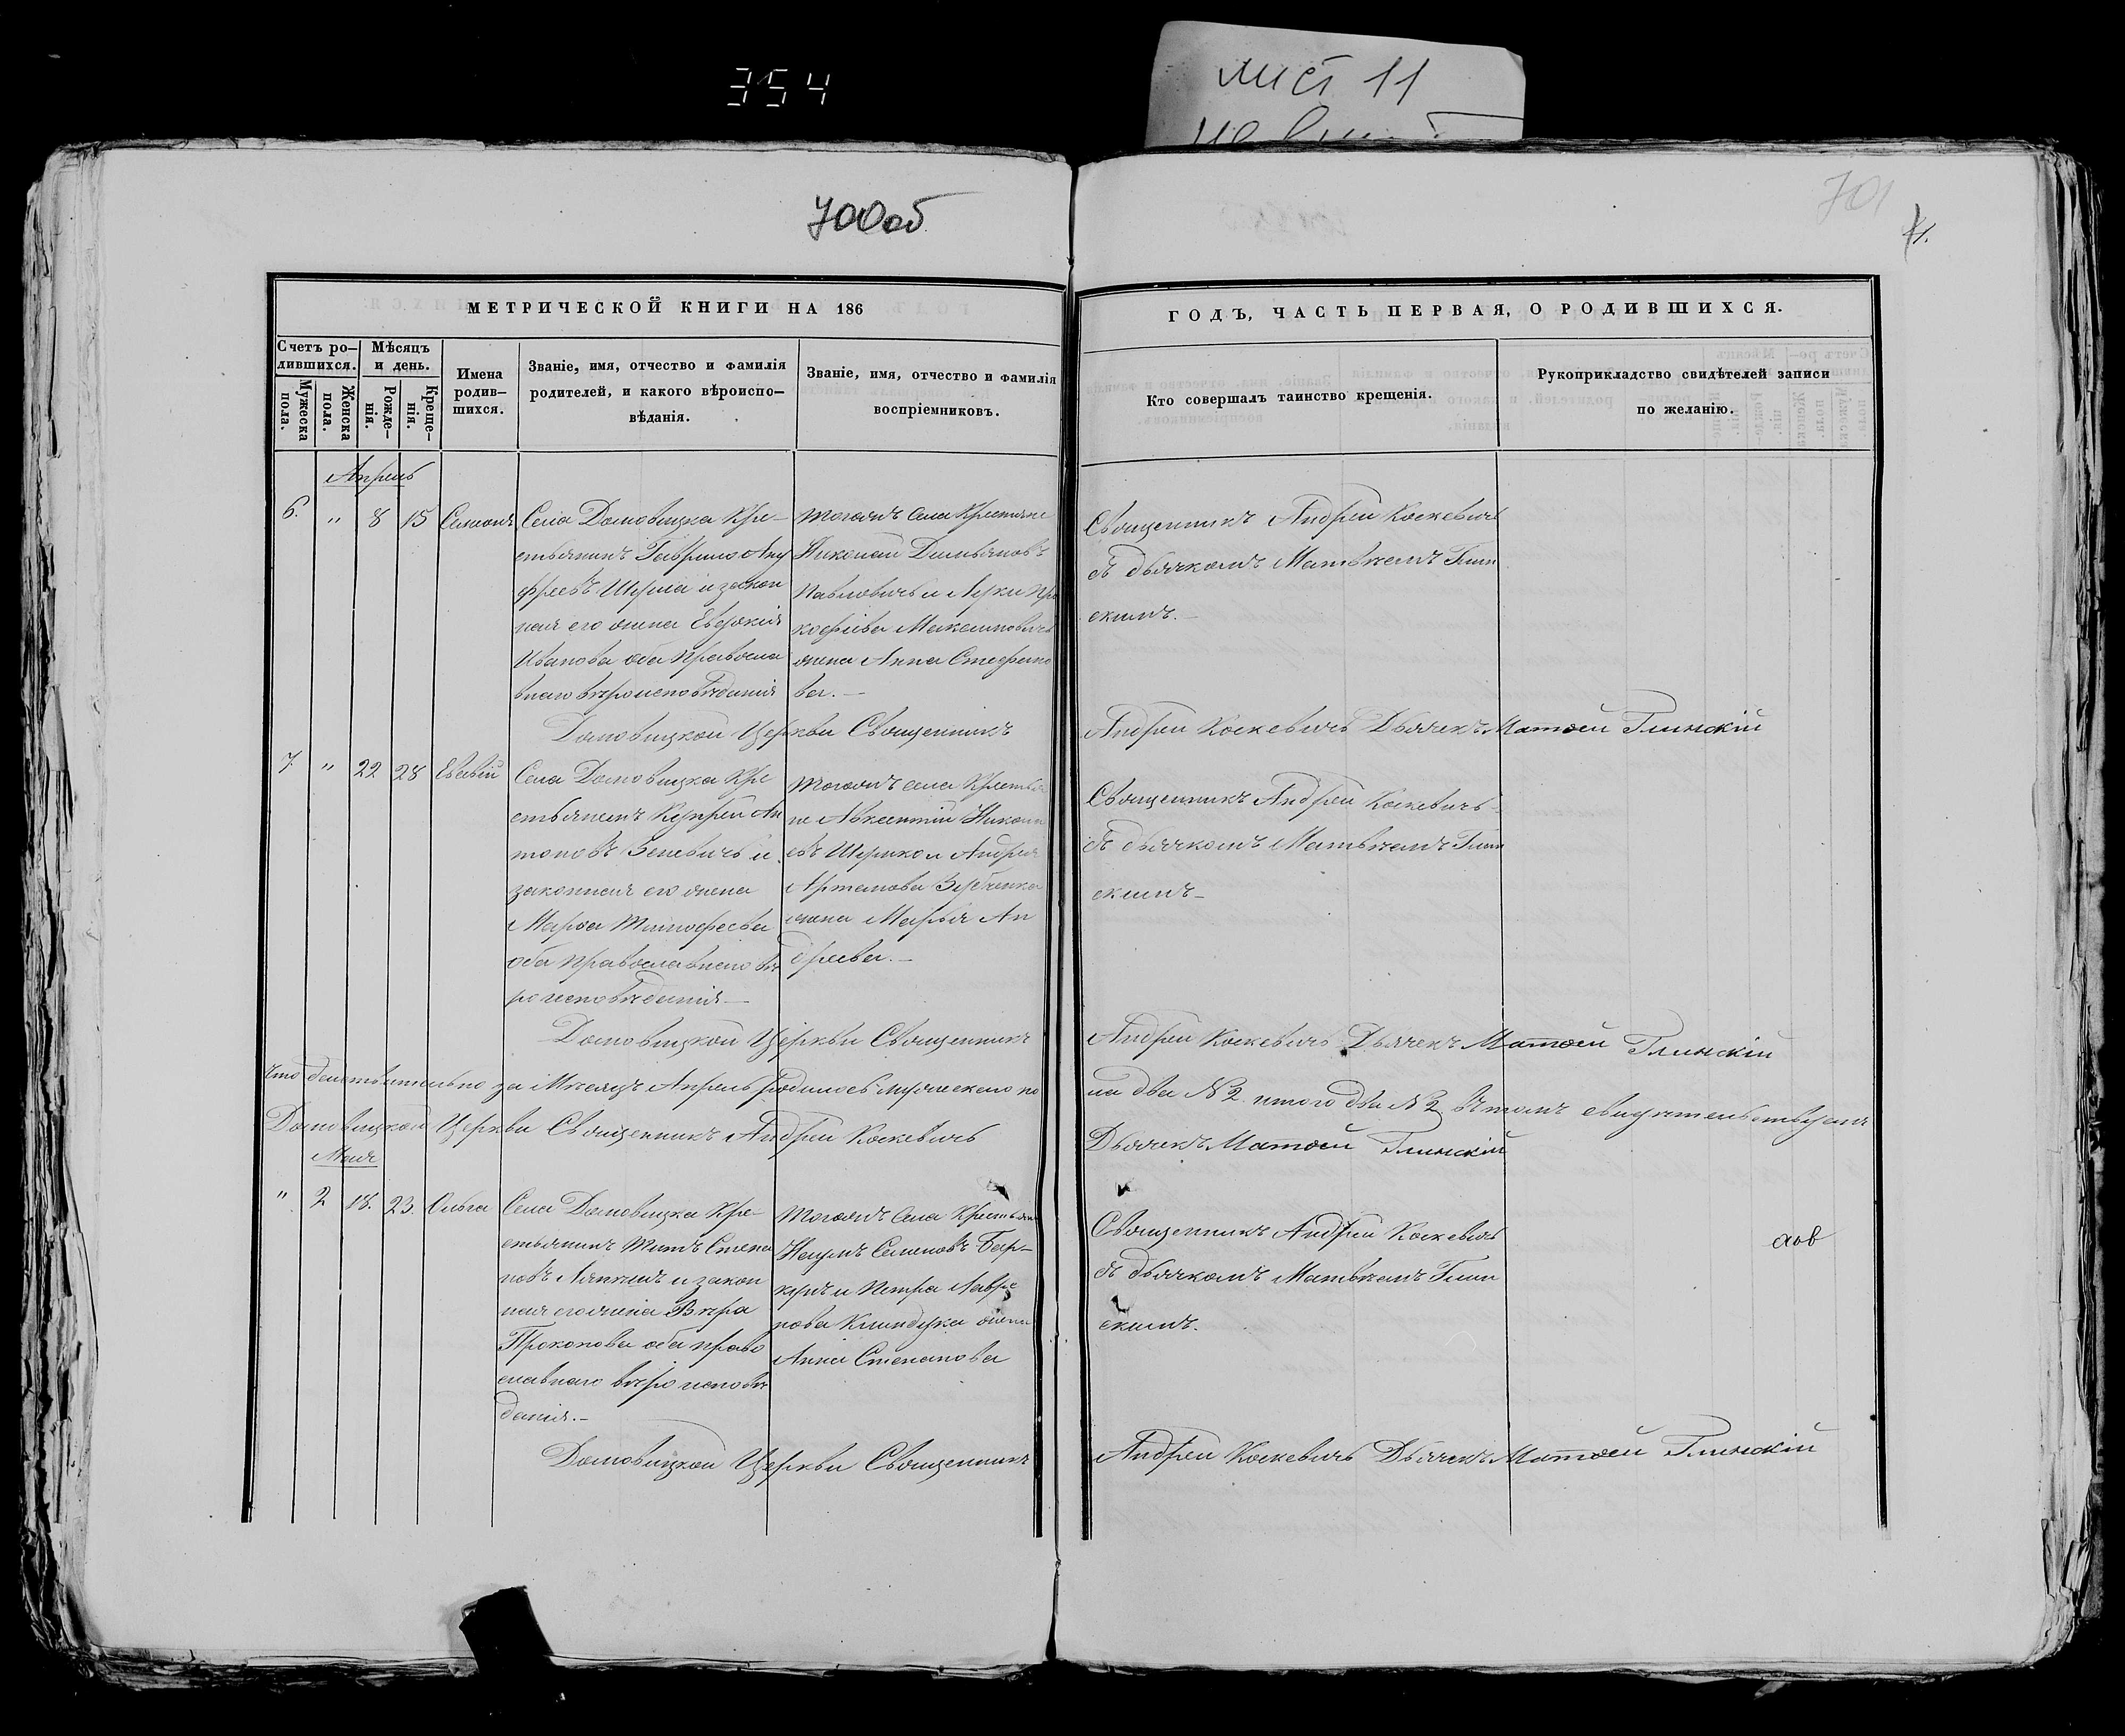 354
лист 11
700об.
701
МЕТРИЧЕСКОЙ КНИГИ НА 186
Счетъ ро-
дившихся.
Мужеска
пола.
Женска
пола.
Мѣсяцъ
и день.
Рожде-
нія.
Креще-
нія.
Имена
родив-
шихся.
Званіе, имя, отчество и фамилія
родителей, и какого вѣроиспо-
вѣданія.
Званіе, имя, отчество и фамилія
воспріемниковъ.
ГОДЪ, ЧАСТЬ ПЕРВАЯ, О РОДИВШИХСЯ.
Кто совершалъ таинство крещенія.
Рукоприкладство свидѣтелей записи
по желанію.
Апрель
6. " 8 15
Села Домовицка Кре-
стьянинъ Гаврило Ану
фреевъ и закон
ная его жена Евдокія
Иванова оба Православ
внаго вѣроисповѣданія
Тогожъ села Крестьяне
Николай Демьяновъ
Павловичь и Луки Про
кофіева Максимовича
жена Анна Стефано
ва.—
Священникъ Андрей Коскевичь
съ дьячкомъ Матвѣемъ Глин
скимъ.—
Домовицкой Церкви Священникъ Андрей Коскевичь Дьячекъ Матѳей Глинскій
7. " 22 28
Села Домовицка Кре
стьянинъ Купрей Ан
тоновъ Зеневичь и
законная его жена
Марѳа Тимофеева
оба Православнаго вѣ
роисповѣданія—
Тогожъ села Крестья
не Авксентій Никола
евъ и Андрея
Артемова
жена Марья Ан
дреева.—
Священникъ Андрей Коскевичь
съ дьячкомъ Матвѣемъ Глин
скимъ—
Домовицкой Церкви Священникъ Андрей Коскевичь Дьячекъ Матѳей Глинскій
Что действительно за Мѣсяцъ Апрель родилось мужескаго по
ла два № 2 итого два № 2 въ томъ свидѣтельствуемъ
Домовицкой Церкви Священникъ Андрей Коскевичь Дьячекъ Матѳей Глинскій
Мая
" 2 18. 23. Ольга
Села Домовицка Кре-
стьянинъ Титъ Степа
новъ и закон
ная его жена Вѣра
Прокопова оба право
славнаго вѣроисповѣ
данія.—
Тогожъ села Крестьяне
Наумъ Семеновъ
и Петра Лавре
нова жена
Анна Степанова
Священникъ Андрей Коскевичь
съ дьячкомъ Матвѣемъ Глин
скимъ.
Домовицкой Церкви Священникъ Андрей Коскевичь Дьячекъ Матѳей Глинскій